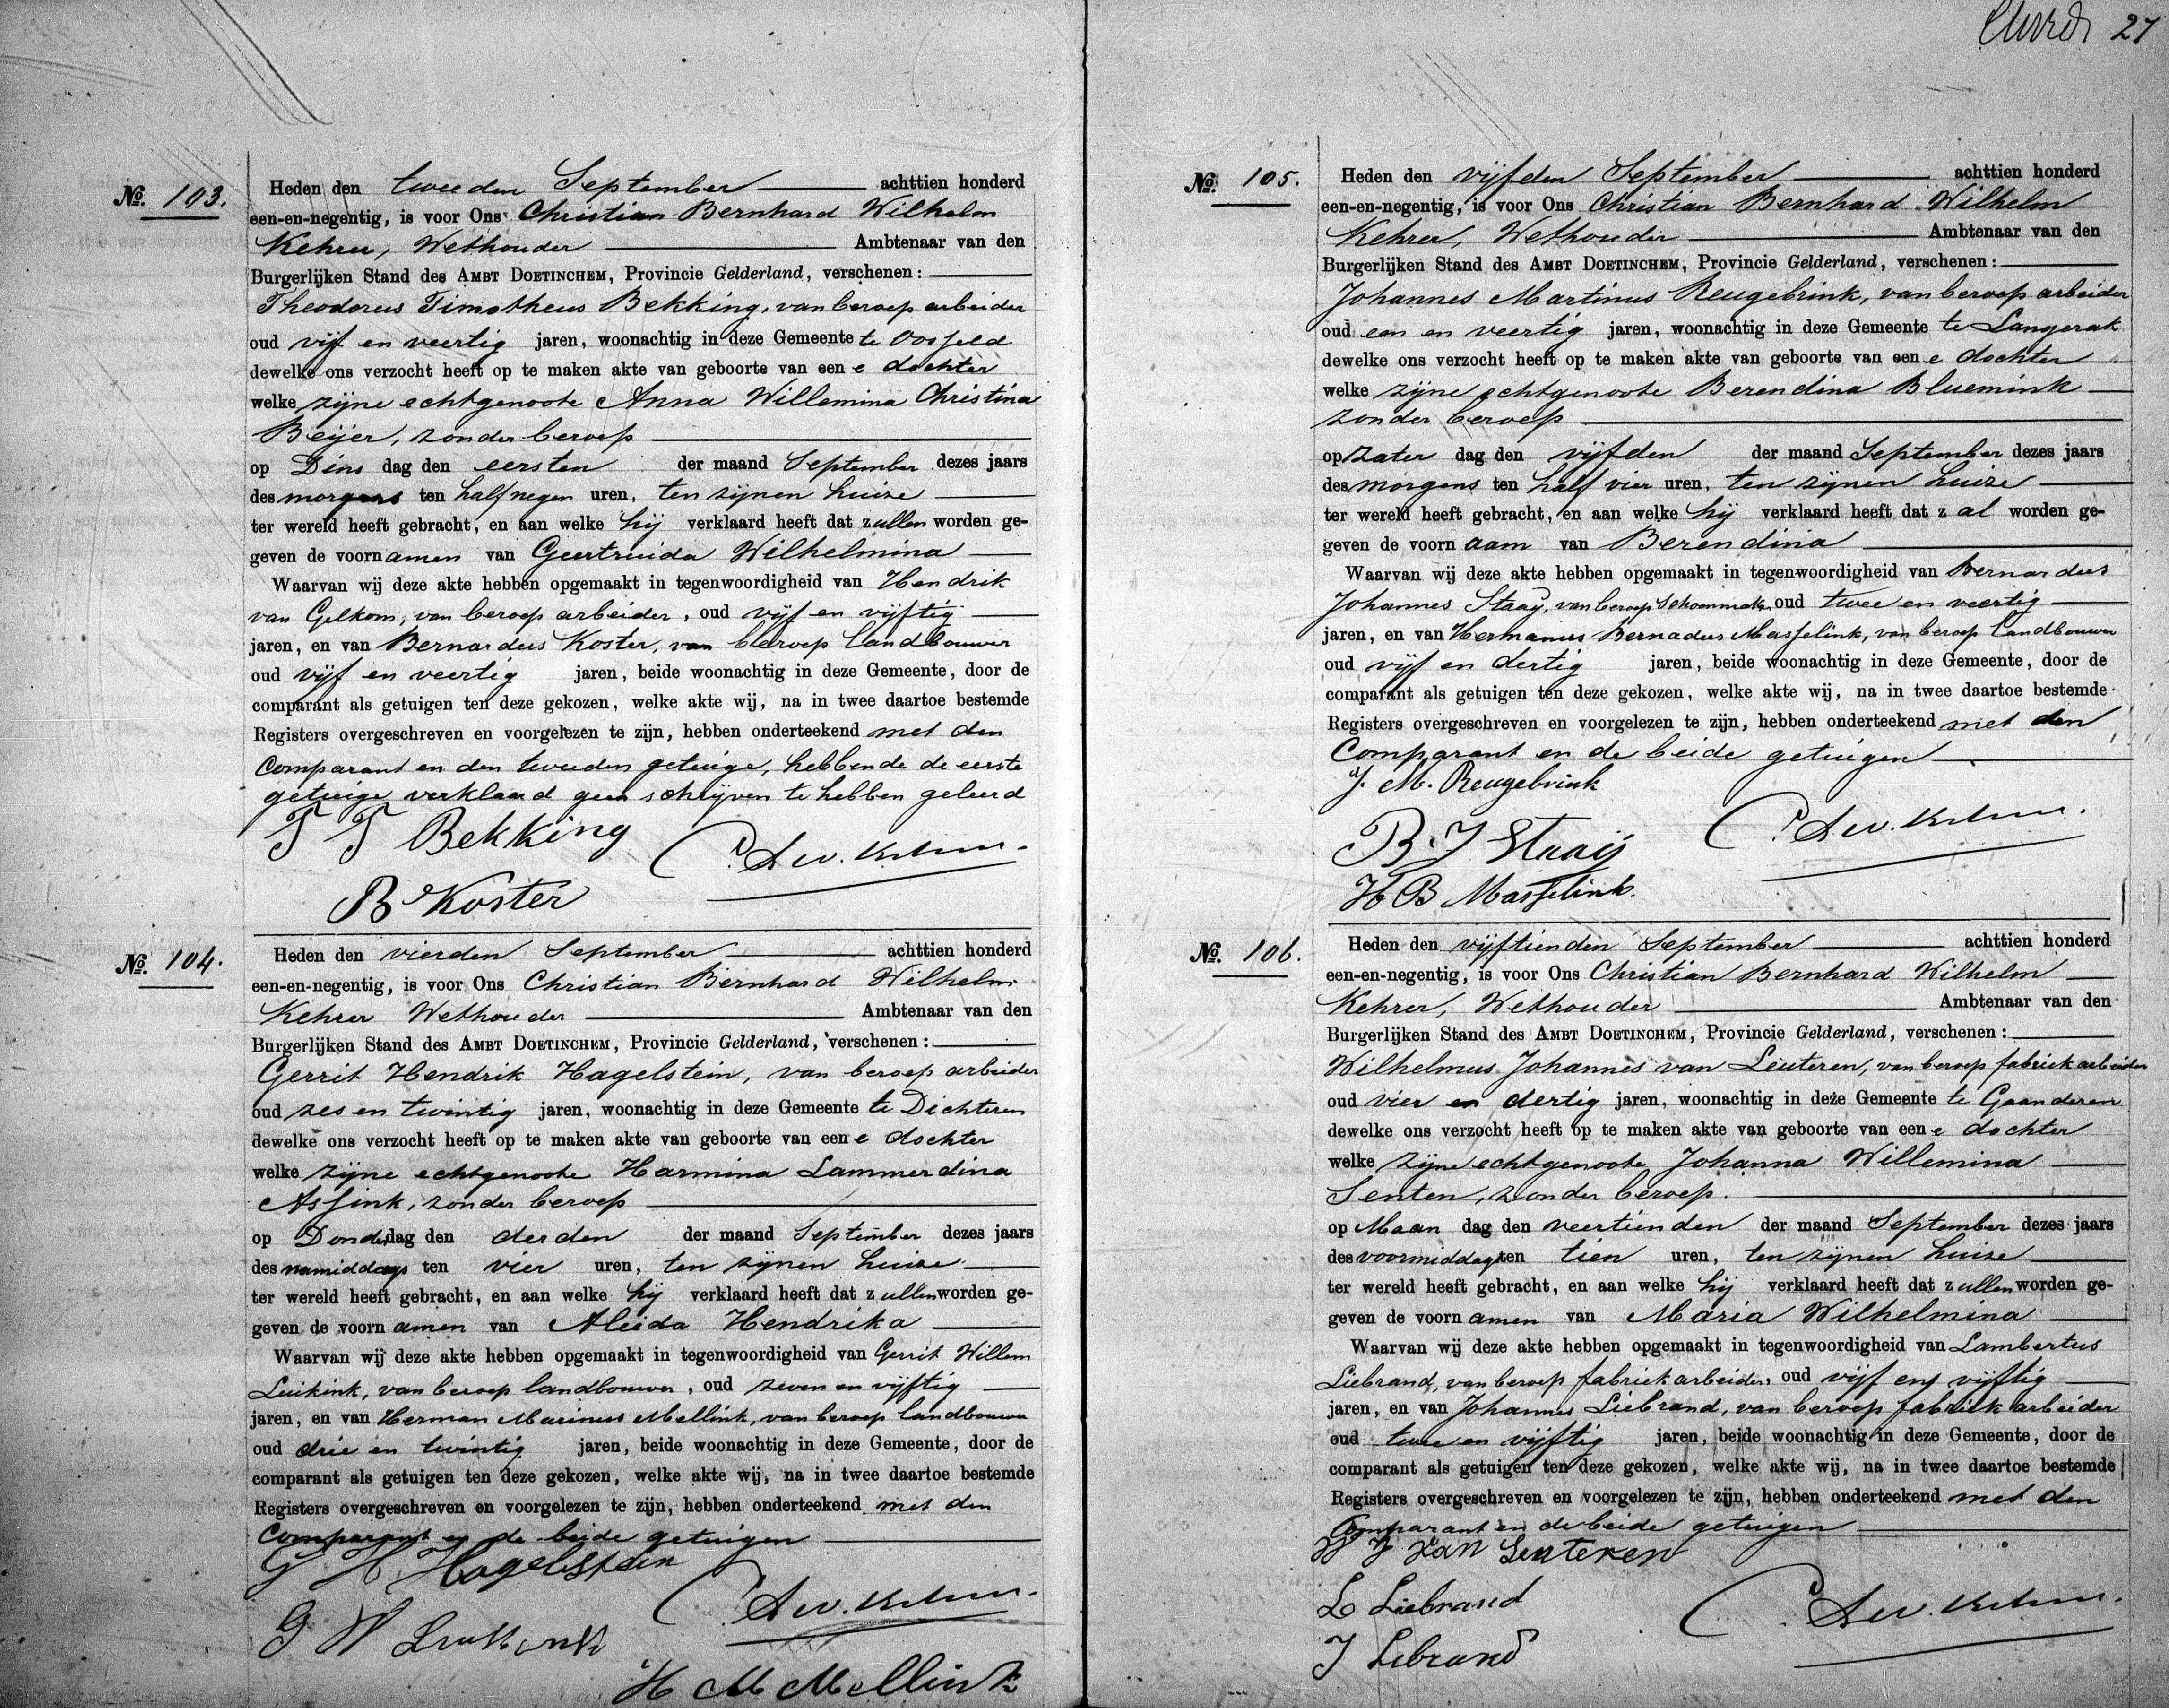 27
No. 103.
Heden den tweeden September achttien honderd
een-en-negentig, is voor Ons Christian Bernhard Wilhelm
Kehrer, Wethouder Ambtenaar van den
Burgerlijken Stand des AMBT DOETINCHEM, Provincie Gelderland, verschenen:
Theodorus Timotheus Bekking, van beroep arbeider
oud vijf en veertig jaren, woonachtig in deze Gemeente te Oosseld
dewelke ons verzocht heeft op te maken akte van geboorte van eene dochter
welke zijne echtgenoote Anna Willemina Christina
Beijer, zonder beroep
op Dinsdag den eersten der maand September dezes jaars
des morgens ten half negen uren, ten zijnen huize
ter wereld heeft gebracht, en aan welke hij verklaard heeft dat zullen worden ge-
geven de voornamen van Geertruida Wilhelmina
Waarvan wij deze akte hebben opgemaakt in tegenwoordigheid van Hendrik
van Gelkom, van beroep arbeider, oud vijf en vijftig
jaren, en van Bernardus Koster, van beroep landbouwer
oud vijf en veertig jaren, beide woonachtig in deze Gemeente, door de
comparant als getuigen ten deze gekozen, welke akte wij, na in twee daartoe bestemde
Registers overgeschreven en voorgelezen te zijn, hebben onderteekend met den
Comparant en den tweeden getuige, hebbende de eerste
getuige verklaard geen schrijven te hebben geleerd
T T Bekking
B Koster
No. 104.
Heden den vierden September achttien honderd
een-en-negentig, is voor Ons Christian Bernhard Wilhelm
Kehrer Wethouder Ambtenaar van den
Burgerlijken Stand des AMBT DOETINCHEM, Provincie Gelderland, verschenen:
Gerrit Hendrik Hagelstein, van beroep arbeider
oud zes en twintig jaren, woonachtig in deze Gemeente te Dichteren
dewelke ons verzocht heeft op te maken akte van geboorte van eene dochter
welke zijne echtgenoote Harmina Lammerdina
Assink, zonder beroep
op Donderdag den derden der maand September dezes jaars
des namiddags ten vier uren, ten zijnen huize
ter wereld heeft gebracht, en aan welke hij verklaard heeft dat zullen worden ge-
geven de voornamen van Aleida Hendrika
Waarvan wij deze akte hebben opgemaakt in tegenwoordigheid van Gerrit Willem
Luikink, van beroep landbouwer, oud zeven en vijftig
jaren, en van Herman Marinus Mellink, van beroep landbouwer
oud drie en twintig jaren, beide woonachtig in deze Gemeente, door de
comparant als getuigen ten deze gekozen, welke akte wij, na in twee daartoe bestemde
Registers overgeschreven en voorgelezen te zijn, hebben onderteekend met den
Comparant en de beide getuigen
G H Hagelstein
G W
H M Mellink
No. 105.
Heden den vijfden September achttien honderd
een-en-negentig, is voor Ons Christian Bernhard Wilhelm
Kehrer, Wethouder Ambtenaar van den
Burgerlijken Stand des AMBT DOETINCHEM, Provincie Gelderland, verschenen:
Johannes Martinus Reugebrink, van beroep arbeider
oud een en veertig jaren, woonachtig in deze Gemeente te Langerak
dewelke ons verzocht heeft op te maken akte van geboorte van eene dochter
welke zijne echtgenoote Berendina Bluemink
zonder beroep
op Zaterdag den vijfden der maand September dezes jaars
des morgens ten half vier uren, ten zijnen huize
ter wereld heeft gebracht, en aan welke hij verklaard heeft dat zal worden ge-
geven de voornaam van Berendina
Waarvan wij deze akte hebben opgemaakt in tegenwoordigheid van Bernardus
Johannes Staaij, van beroep Schoenmaker oud twee en veertig
jaren, en van Hermanus Bernadus Masselink, van beroep landbouwer
oud vijf en dertig jaren, beide woonachtig in deze Gemeente, door de
comparant als getuigen ten deze gekozen, welke akte wij, na in twee daartoe bestemde
Registers overgeschreven en voorgelezen te zijn, hebben onderteekend met den
Comparant en de beide getuigen
J. M. Reugebrink
B. J Staaij
H B Masselink.
No. 106.
Heden den vijftienden September achttien honderd
een-en-negentig, is voor Ons Christian Bernhard Wilhelm
Kehrer, Wethouder Ambtenaar van den
Burgerlijken Stand des AMBT DOETINCHEM, Provincie Gelderland, verschenen:
Wilhelmus Johannes van Leuteren, van beroep fabriekarbeider
oud vier en dertig jaren, woonachtig in deze Gemeente te Gaanderen
dewelke ons verzocht heeft op te maken akte van geboorte van eene dochter
welke zijne echtgenoote Johanna Willemina
Senten, zonder beroep.
op Maandag den veertienden der maand September dezes jaars
des voormiddags ten tien uren, ten zijnen huize
ter wereld heeft gebracht, en aan welke hij verklaard heeft dat zullen worden ge-
geven de voornamen van Maria Wilhelmina
Waarvan wij deze akte hebben opgemaakt in tegenwoordigheid van Lambertus
Liebrand, van beroep fabriekarbeider, oud vijf en vijftig
jaren, en van Johannes Liebrand, van beroep fabriekarbeider
oud twee en vijftig jaren, beide woonachtig in deze Gemeente, door de
comparant als getuigen ten deze gekozen, welke akte wij, na in twee daartoe bestemde
Registers overgeschreven en voorgelezen te zijn, hebben onderteekend met den
Comparant en de beide getuigen
W J van Leuteren
L Liebrand
J Lebrand